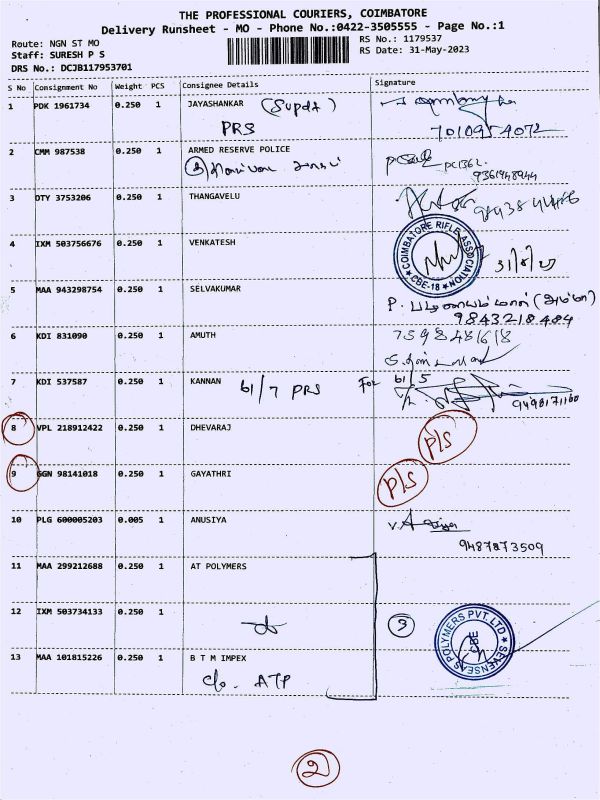 THE PROFESSIONAL COURIERS, COIMBATORE
Delivery Runsheet - MO - Phone No.:0422-3505555 - Page No.:1
Route: NGN ST MO
RS No.: 1179537
Staff: SURESH P S
RS Date: 31-May-2023
DRS No.: DCJB117953701
S No Consignment No Weight PCS Consignee Details Signature
1 PDK 1961734 0.250 1 JAYASHANKAR (Supdt)
PRS
7010954072
2 CMM 987538 0.250 1 ARMED RESERVE POLICE
PC1362
9361948944
3 DTY 3753206 0.250 1 THANGAVELU
4 IXM 503756676 0.250 1 VENKATESH
COIMBATORE RIFLE ASSOCIATION
CBE-18
5 MAA 943298754 0.250 1 SELVAKUMAR
P. பழனியம்மாள் (அம்மா)
9843218484
6 KDI 831090 0.250 1 AMUTH
7598481618
7 KDI 537587 0.250 1 KANNAN 61/7 PRS For 61/5
9498171160
8 VPL 218912422 0.250 1 DHEVARAJ P/S
9 GGN 98141018 0.250 1 GAYATHRI P/S
10 PLG 600005203 0.005 1 ANUSIYA
9487873509
11 MAA 299212688 0.250 1 AT POLYMERS
12 IXM 503734133 0.250 1
3
SEVENSEAS POLYMERS PVT.LTD
CBE
13 MAA 101815226 0.250 1 B T M IMPEX
c/o. ATP
2